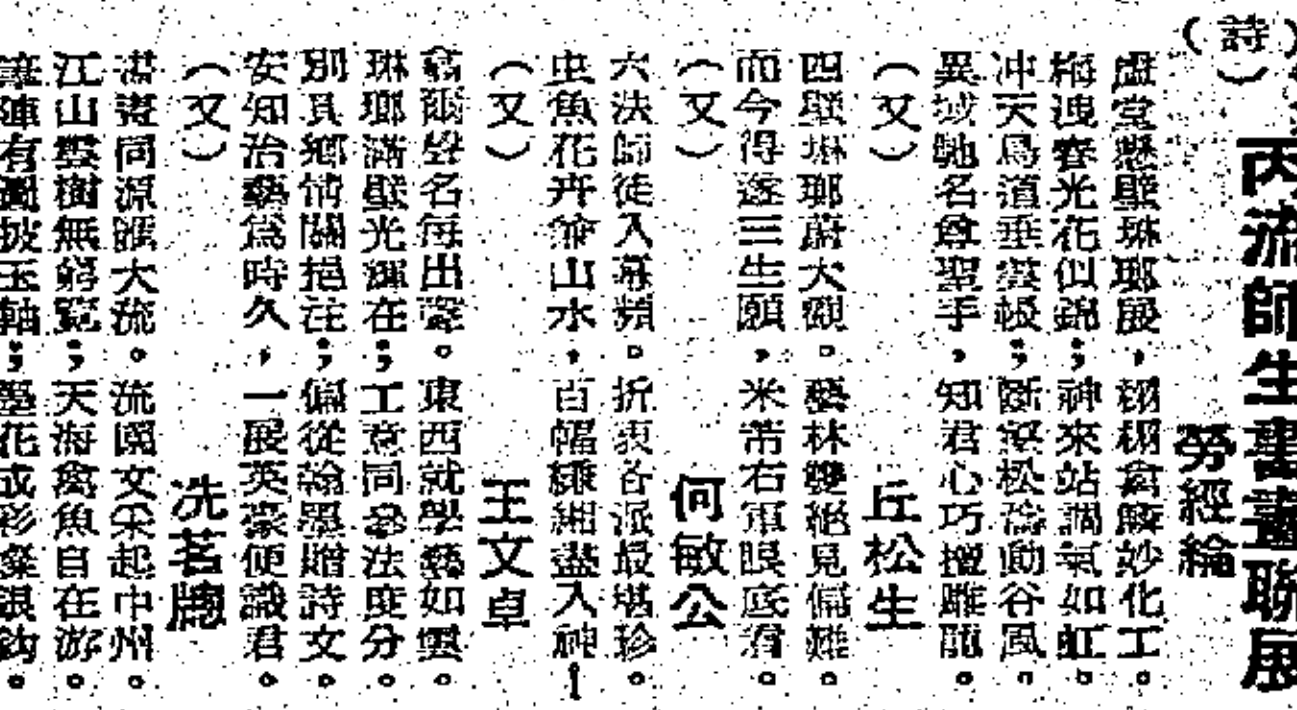 (詩)
丙流師生書畫聯展
勞經綸
虛堂懸壁琳瑯展,栩栩禽鱗妙化工。
梅洩春光花似錦;神來站調氣如虹。
冲天鳥道垂雲峻;斷寂松濤動谷風。
異域馳名尊聖手,知君心巧擅雕龍。
(又)
丘松生
四壁琳瑯蔚大觀。藝林雙絕見偏難。
而今得遂三生願,米芾右軍眼底看。
(又)
何敏公
六法師徒入幕頻。折衷各派最堪珍。
虫魚花卉兼山水,百幅縑緗盡入神!
(又)
王文卓
翕爾聲名每出羣。東西就學藝如雲。
琳瑯滿壁光輝在;工意同參法度分。
別具鄉情關挹注;偏從翰墨贈詩文。
安知治藝為時久,一展英豪便識君。
(又)
冼茗牕
書畫同源匯大流。流風文采起中州。
江山雲樹無窮覽;天海禽魚自在游。
筆陣有圖披玉軸;墨花成彩燦銀鈎。